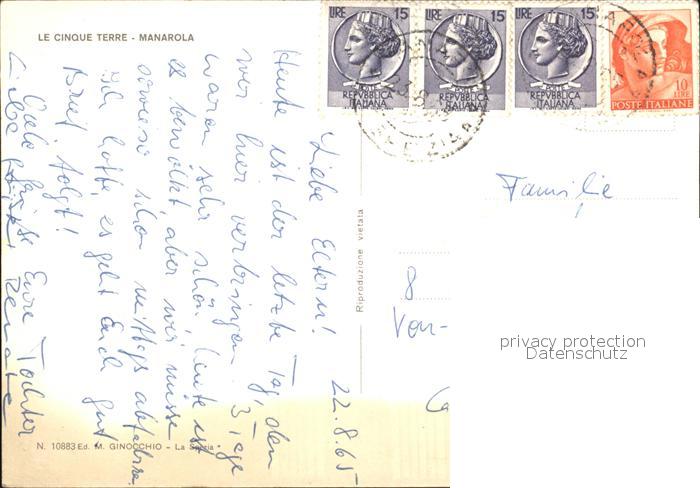 LE CINQUE TERRE - MANAROLA
22.8.65
Liebe Eltern!
Heute ist der letzte Tag, den
wir hier verbringen. 3 Tage
waren sehr schön. Heute ist
es bewölkt, aber wir müssen
sowieso schon mittags abfahren.
Ich hoffe, es geht Euch gut.
Brief folgt!
Viele Grüsse Eure Tochter
Liebe Renate
N. 10883 Ed. M. GINOCCHIO - La Spezia
Riproduzione vietata
LIRE 15
POSTE
REPVBBLICA
ITALIANA
LIRE 15
POSTE
REPVBBLICA
ITALIANA
LIRE 15
POSTE
REPVBBLICA
ITALIANA
10
LIRE
POSTE ITALIANE
Familie
8
Von-
privacy protection
Datenschutz